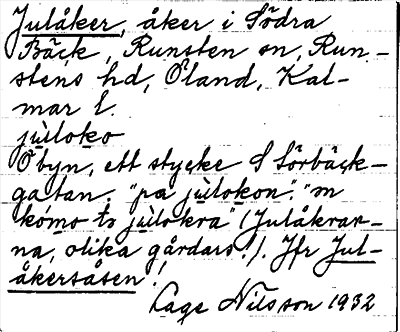 Julåker, åker i Södra
Bäck, Runsten sn, Run-
stens hd, Öland, Kal-
mar l.
jùloko
Ö byn, ett stycke S Sörbäck-
gatan. "på jùlokon". "m
kómo to jùlokra" (Julåkrar-
na, olika gårdars!). Jfr Jul-
åkersåsen!
Lage Nilsson 1932